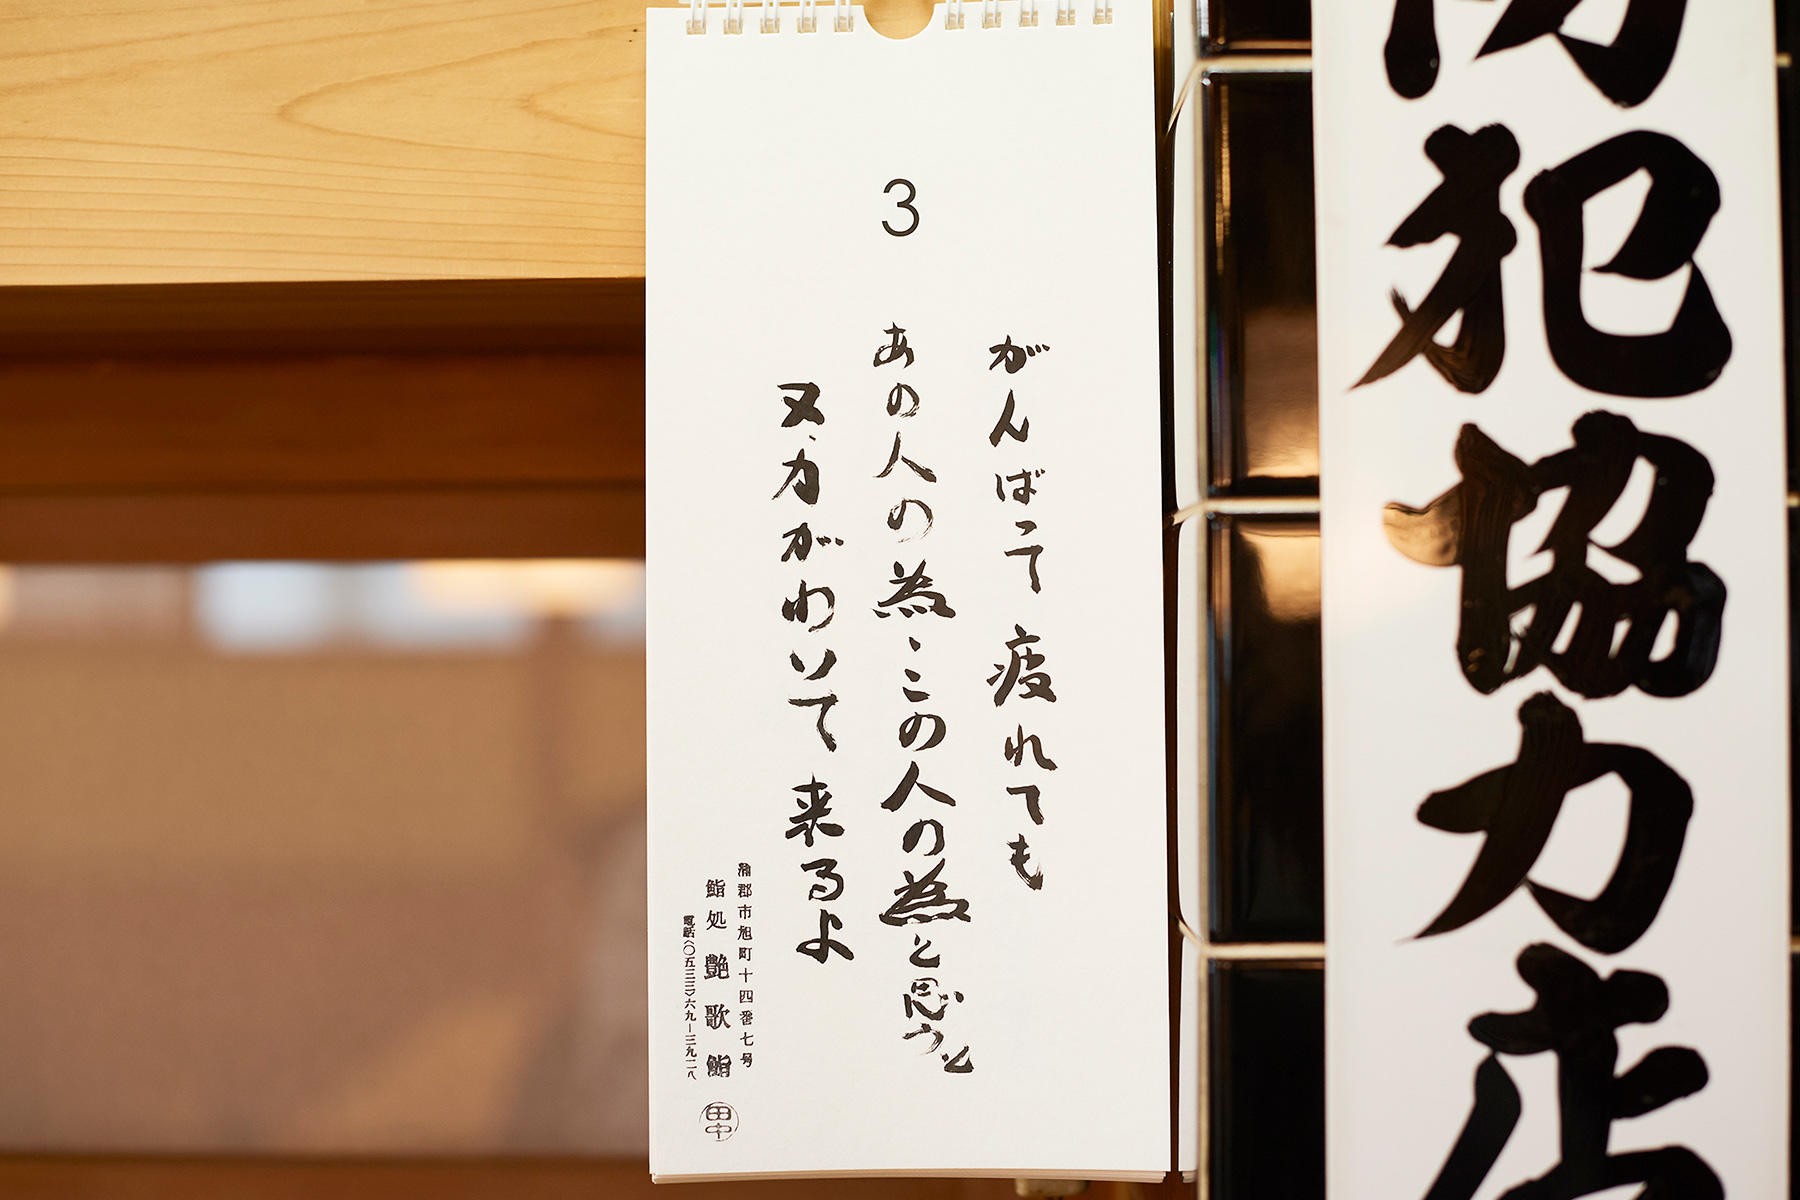 防犯協力店
3
がんばって疲れても
あの人の為、この人の為と思うと
又、力がわいて来るよ
蒲郡市旭町十四番七号
鮨処 艶歌鮨
電話〈〇五三三〉六九-三九二八
田中